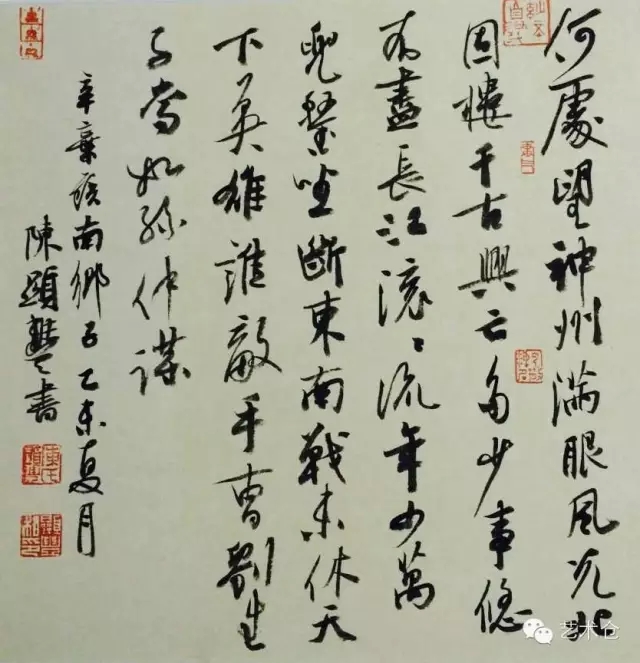 何處望神州滿眼風光北
固樓千古興亡多少事悠
〻不盡長江滾〻流年少萬
兜鍪坐斷東南戰未休天
下英雄誰敵手曹劉生
子當如孫仲謀
辛棄疾南鄉子乙未夏月
陳顯書
艺术仓